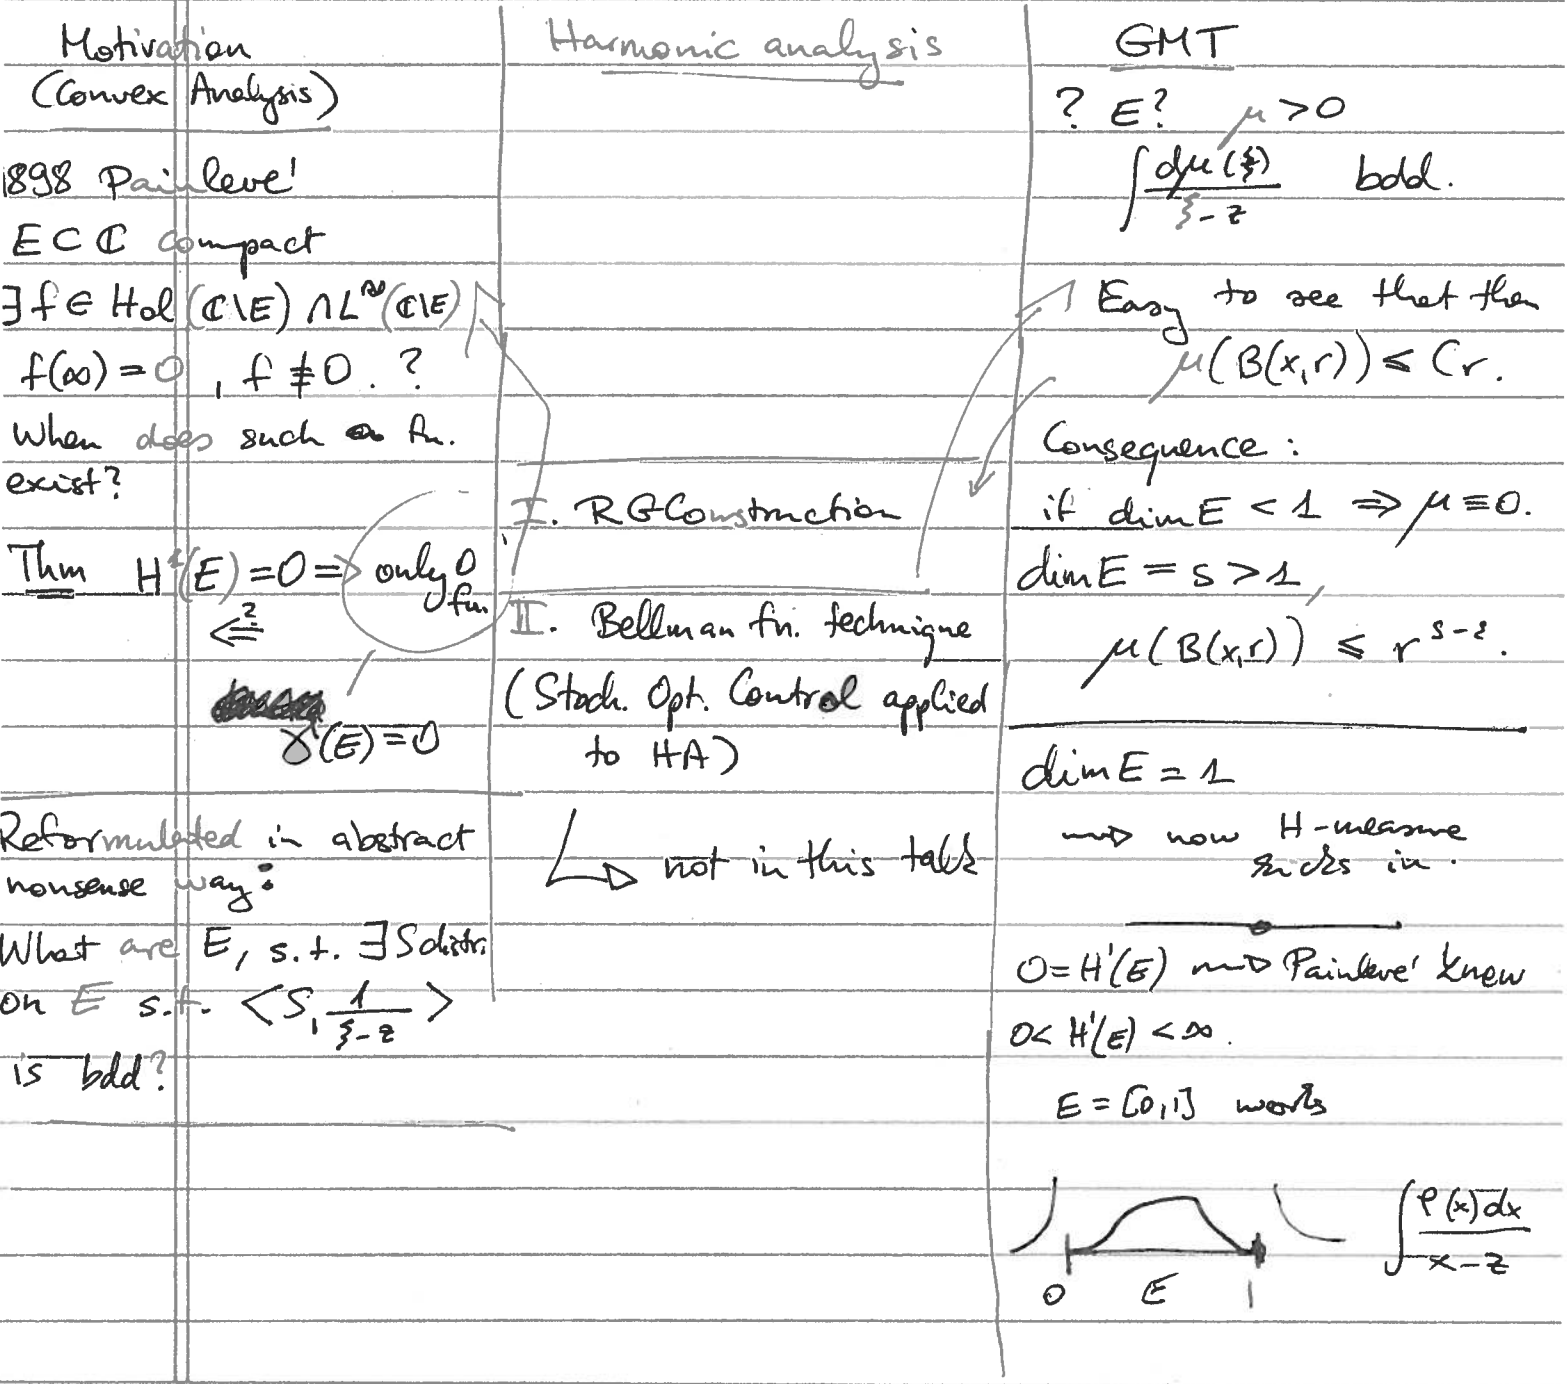 Motivation
(Convex Analysis)
1898 Painlevé
E ⊂ ℂ compact
∃ f ∈ Hol (ℂ\E) ∩ L^∞ (ℂ\E)
f(∞) = 0, f ≢ 0. ?
When does such a fn.
exist?
Thm H¹(E) = 0 => only 0 fn.
<=?
γ(E) = 0
Reformulated in abstract
nonsense way:
What are E, s.t. ∃ S distr.
on E s.t. <S, 1/(ξ-z)>
is bdd?
Harmonic analysis
I. RG Construction
II. Bellman fn. technique
(Stoch. Opt. Control applied
to HA)
not in this talk
GMT
? E? μ > 0
∫ dμ(ξ)/(ξ-z) bdd.
Easy to see that then
μ(B(x,r)) ≤ Cr.
Consequence:
if dim E < 1 ⇒ μ ≡ 0.
dim E = s > 1,
μ(B(x,r)) ≤ r^{s-ε}.
dim E = 1
now H-measure
kicks in.
0 = H¹(E) Painlevé knew
0 < H¹(E) < ∞.
E = [0,1] works
∫ φ(x)dx/(x-z)
0 E 1